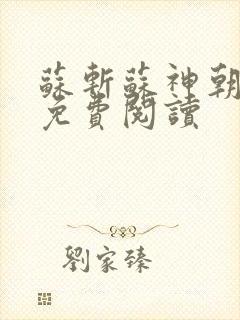 蘇斬蘇神朝
免費閱讀
劉家臻